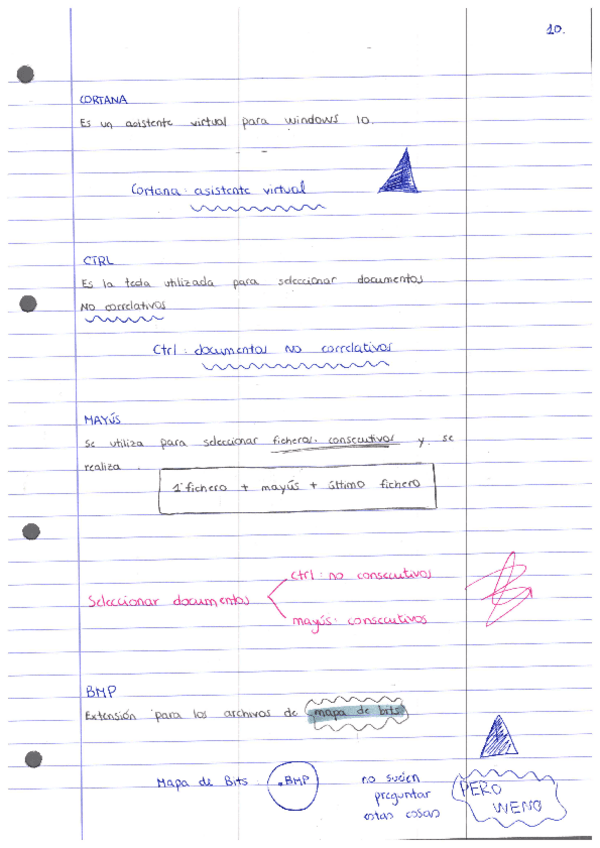 10.
CORTANA
Es un asistente virtual para windows 10.
Cortana: asistente virtual
CTRL
Es la tecla utilizada para seleccionar documentos
NO correlativos
Ctrl: documentos no correlativos
MAYÚS
Se utiliza para seleccionar ficheros consecutivos y se
realiza
1º fichero + mayús + último fichero
ctrl: no consecutivos
Seleccionar documentos
mayús: consecutivos
BMP
Extensión para los archivos de mapa de bits
Mapa de Bits .BMP
no suelen
preguntar
estas cosas
PERO
WENO